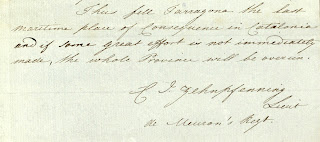 Thus fell Tarragona the last
maritime place of Consequence in Catalonia
and if some great effort is not immediately
made, the whole Province will be overrun.
C J Zehnpfenning
Lieut
de Meuron's Regt.